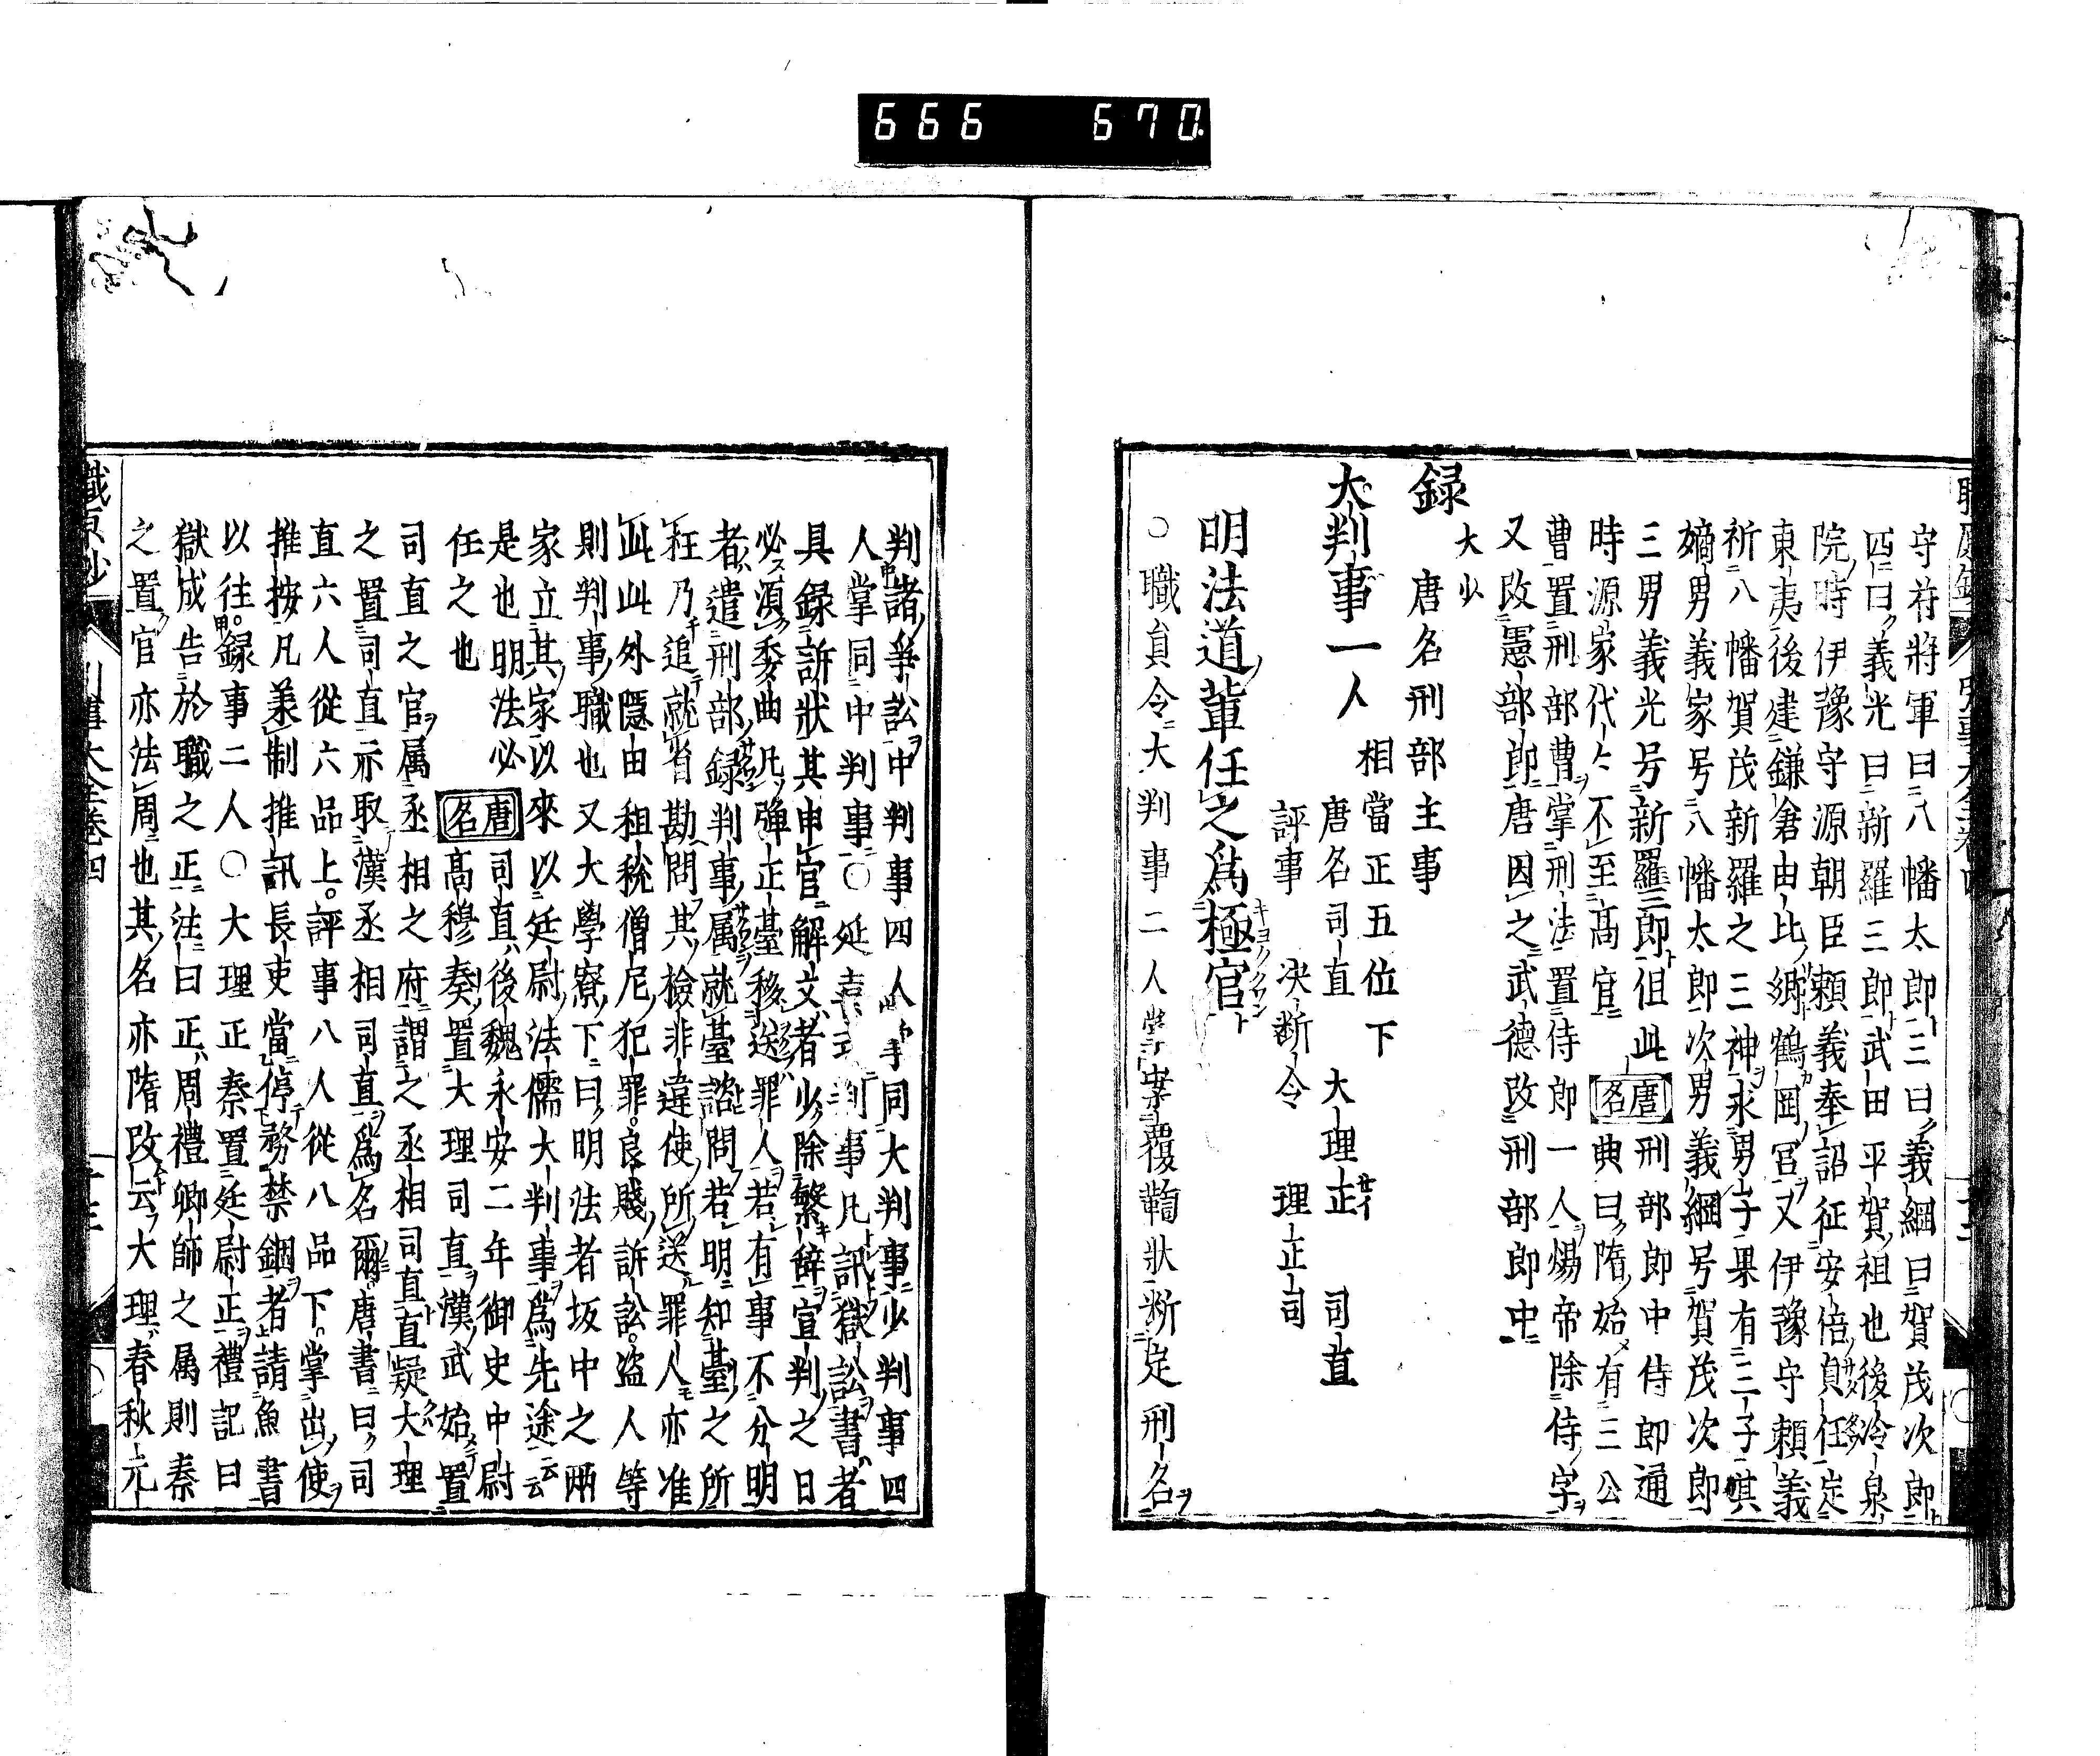 666 670
守府将軍曰八幡太郎三曰義綱曰賀茂次郎
四曰義光曰新羅三郎武田平賀祖也後冷泉
院時伊豫守源朝臣頼義奉詔征安倍貞任定
東夷後建鎌倉由比郷鶴岡宮又伊豫守頼義
祈八幡賀茂新羅之三神求男子果有三子其
嫡男義家号八幡太郎次男義綱号賀茂次郎
三男義光号新羅三郎但此 唐名 刑部郎中侍郎通
時源家代々不至高官 典曰隋始有三公
曹置刑部曹掌刑法置侍郎一人煬帝除侍字
又改憲部郎唐因之武徳改刑部郎中
大少
録 唐名刑部主事
大判事一人 相當正五位下
唐名司直 大理正 司直
評事 決断令 理正司
明法道輩任之為極官
○職員令大判事二人掌案覆鞫状断定刑名
判諸爭訟中判事四人掌同大判事少判事四
人掌同中判事○延喜式判事凡訊獄訟書者
具録訴狀其申官解文者少除繁辞宜判之日
必須委曲凡弾正臺移送罪人若有事不分明
者遣刑部録判事属就臺諮問若明知臺之所
枉乃追就省勘問其檢非違使所送罪人亦准
此此外隠由租税僧尼犯罪良賤訴訟盗人等
則判事職也又大學寮下曰明法者坂中之兩
家立其家以來以廷尉法儒大判事為先途云云
是也明法必 唐名 司直後魏永安二年御史中尉
任之也 高穆奏置大理司直漢武始置
司直之官属丞相之府謂之丞相司直直疑大理
之置司直示取漢丞相司直為名爾唐書曰司
直六人從六品上評事八人從八品下掌出使
推按凡承制推訊長吏當停務禁錮者請魚書
以往録事二人○大理正秦置廷尉正禮記曰
獄成告於職之正法曰正周禮卿師之属則秦
之置官亦法周也其名亦隋改云大理春秋元
職原抄 引事大全巻四